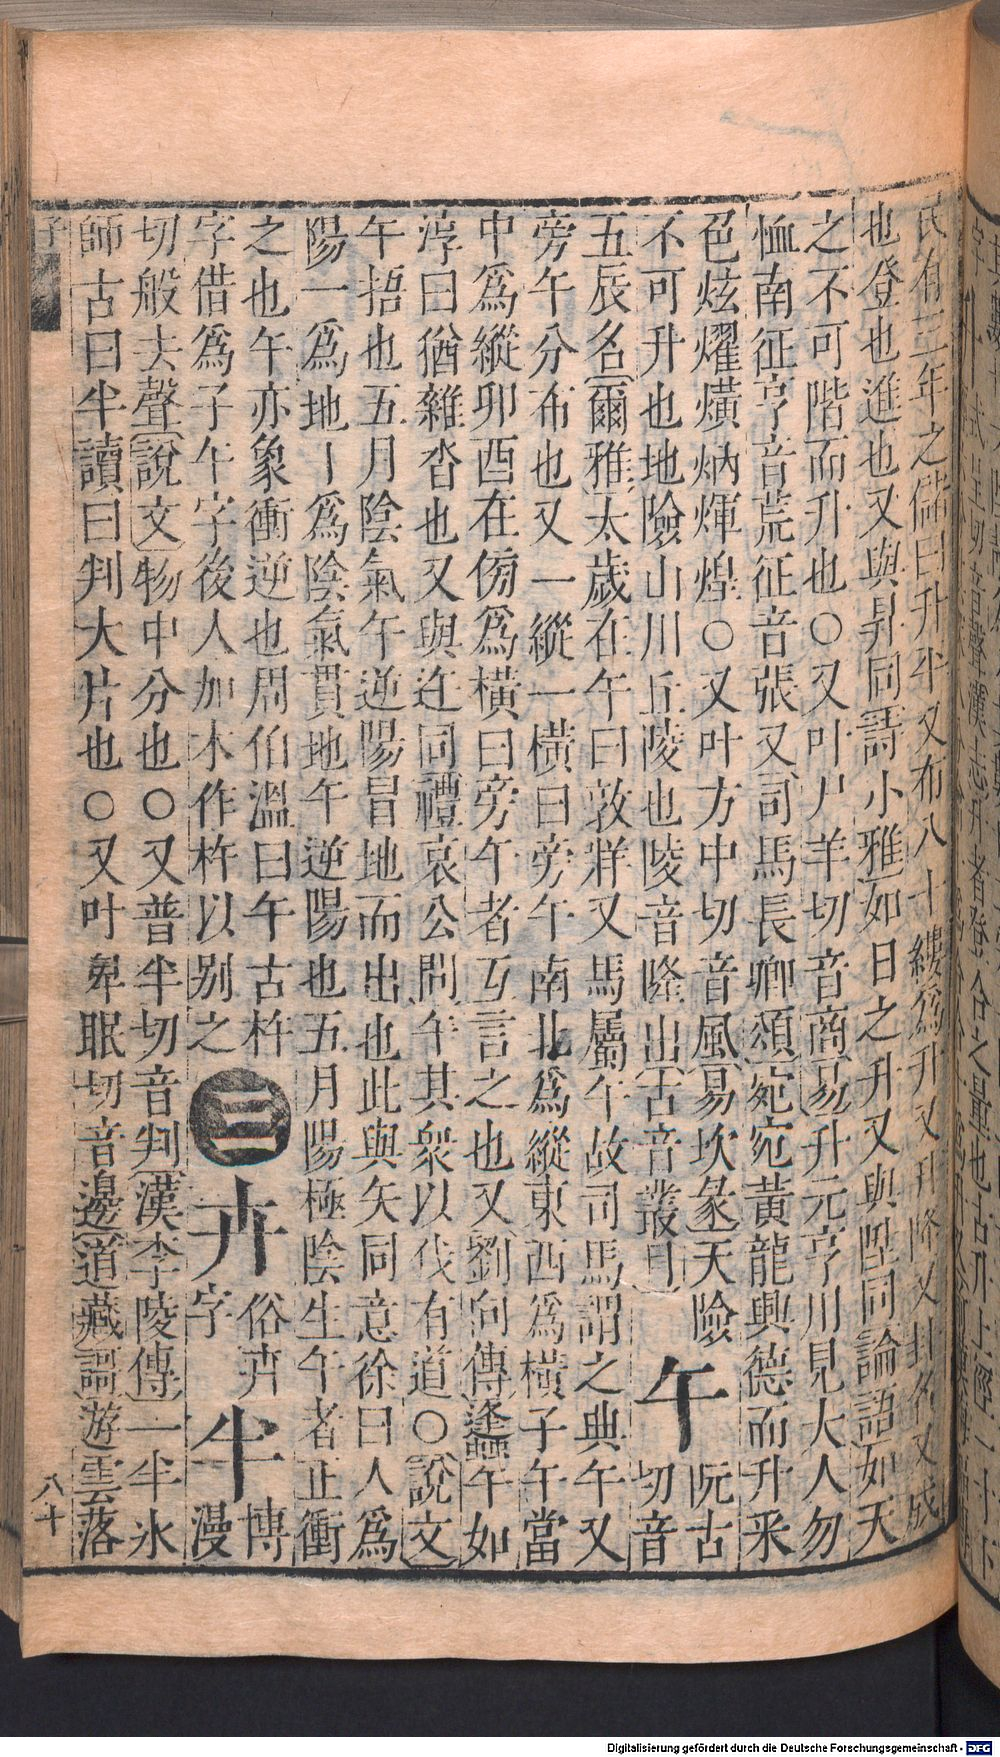 民有三年之儲曰升平又布八十縷爲升又升降又封名又成
也登也進也又與昇同詩小雅如日之升又與陞同論語如天
之不可階而升也○又叶尸羊切音商易升元亨川見大人勿
恤南征亨音荒征音張又司馬長卿頌宛宛黃龍興德而升采
色炫燿熿炳煇煌○又叶方中切音風易坎彖天險
不可升也地險山川丘陵也陵音隆出古音叢目
午
阮古
切音
五辰名爾雅太歲在午曰敦牂又馬屬午故司馬謂之典午又
旁午分布也又一縱一橫曰旁午南北爲縱東西爲橫子午當
中爲縱卯酉在傍爲橫曰旁午者互言之也又劉向傳蠭午如
淳曰猶雜沓也又與迕同禮哀公問午其衆以伐有道○說文
午捂也五月陰氣午逆陽冒地而出也此與矢同意徐曰人爲
陽一爲地丨爲陰氣貫地午逆陽也五月陽極陰生午者正衝
之也午亦象衝逆也周伯溫曰午古杵
字借爲子午字後人加木作杵以别之
三
卉
俗卉
字
半
博
漫
切般去聲說文物中分也○又普半切音判漢李陵傳一半氷
師古曰半讀曰判大片也○又叶卑眠切音邊道藏謌遊雲落
子
八十
Digitalisierung gefördert durch die Deutsche Forschungsgemeinschaft - DFG